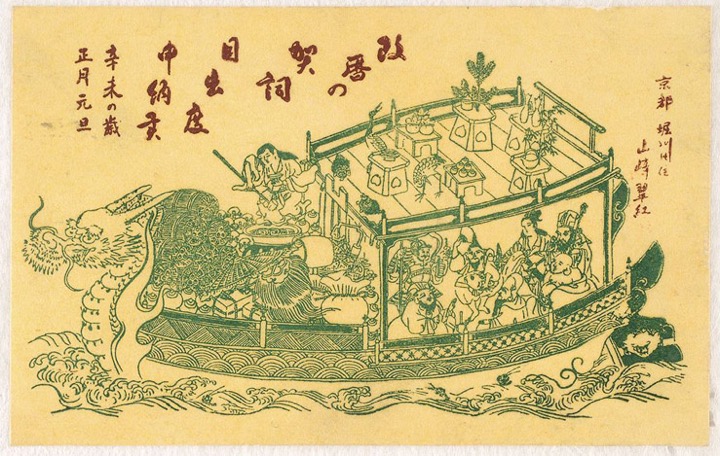 京都 堀川
山崎翠紅
改暦の
賀詞
目出度
申納
辛未の歳
正月元旦